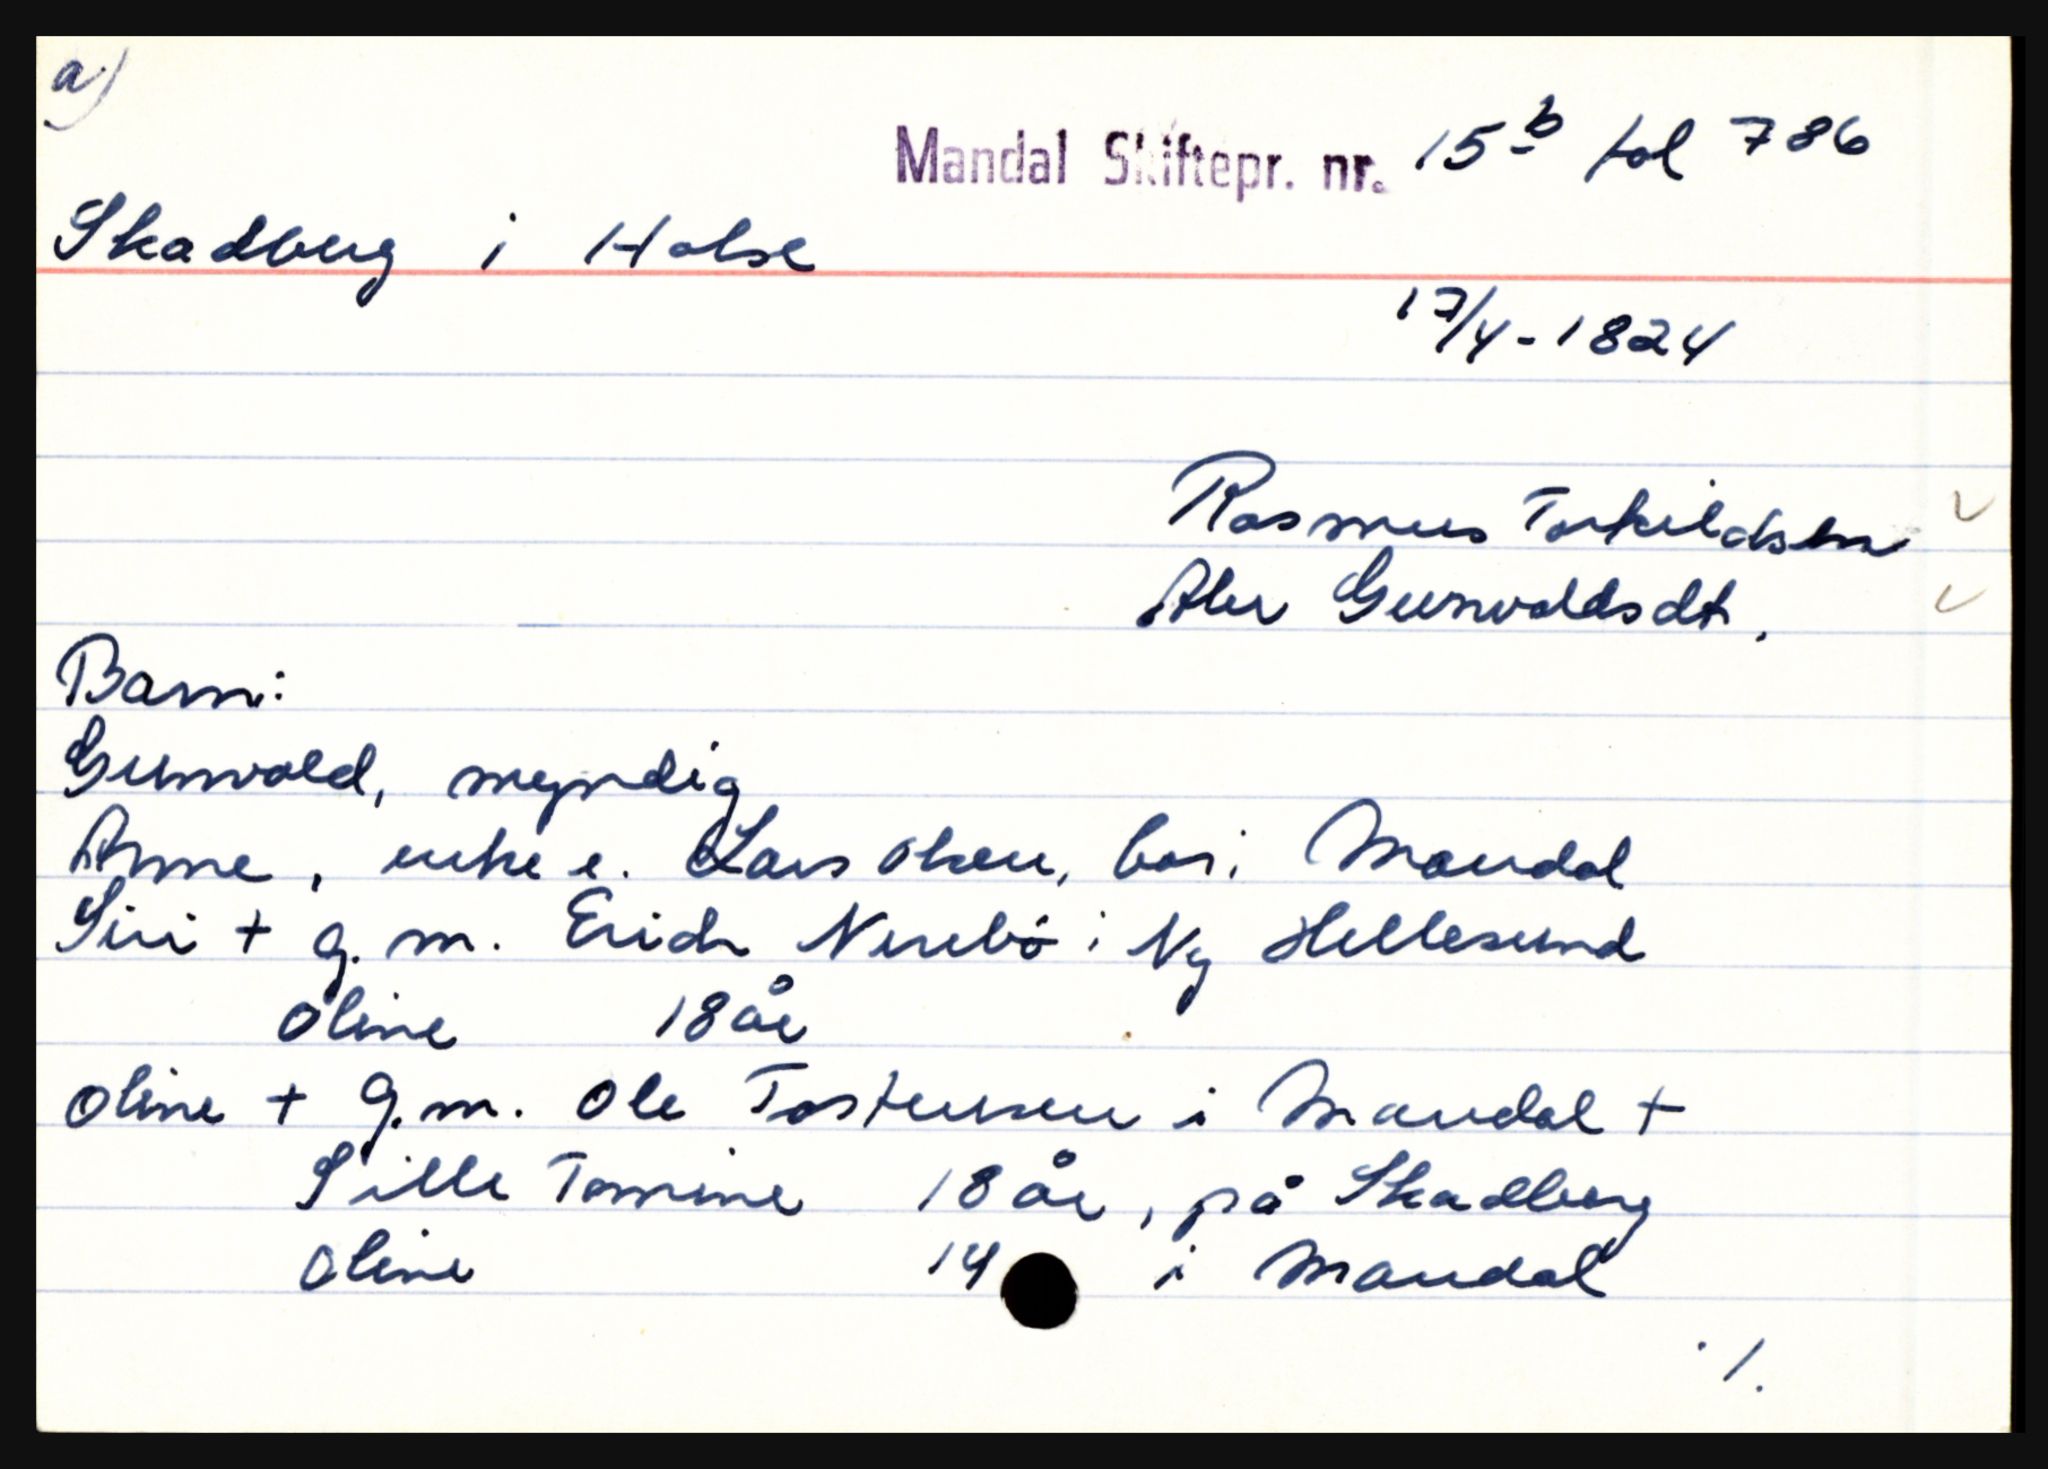 a)
Mandal Skiftepr. nr. 15b fol 786
Skadberg i Halse
17/4-1824
Rasmus Torkildsen
Aler Gunvaldsdt.
Barn:
Gunvald, myndig
Anne, enke e. Lars Olsen, bor i Mandal
Siri + g. m. Erich Nerebø i Ny Hellesund
Oline 18 år
Oline + g.m. Ole Tostensen i Mandal +
Sille Tomine 18 år, på Skadberg
Oline 14 i Mandal
./.